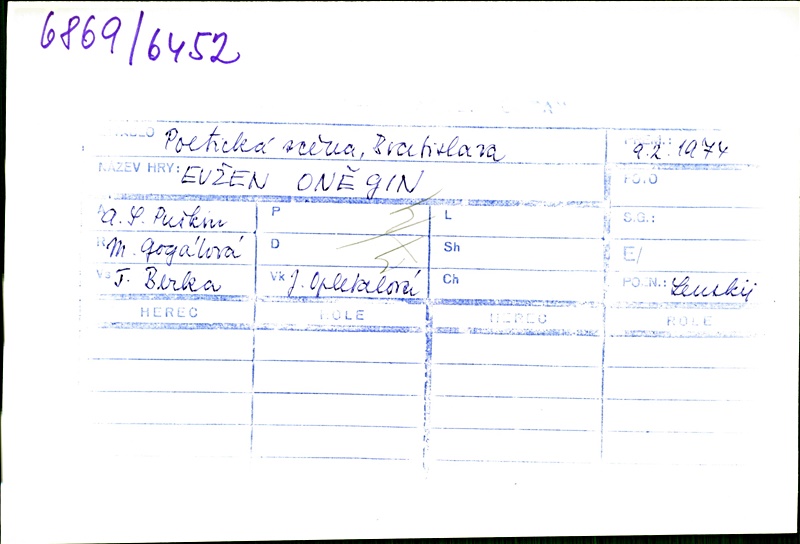 6869/6452
DIVADLO Poetická scéna, Bratislava 9.2.1974
NÁZEV HRY: EVŽEN ONĚGIN FOTO
A. S. Puškin P L S.G.:
R M. Gogálová D Sh E/
Vs T. Berka Vk J. Opletalová Ch POZN.: Lenskij
HEREC ROLE HEREC ROLE